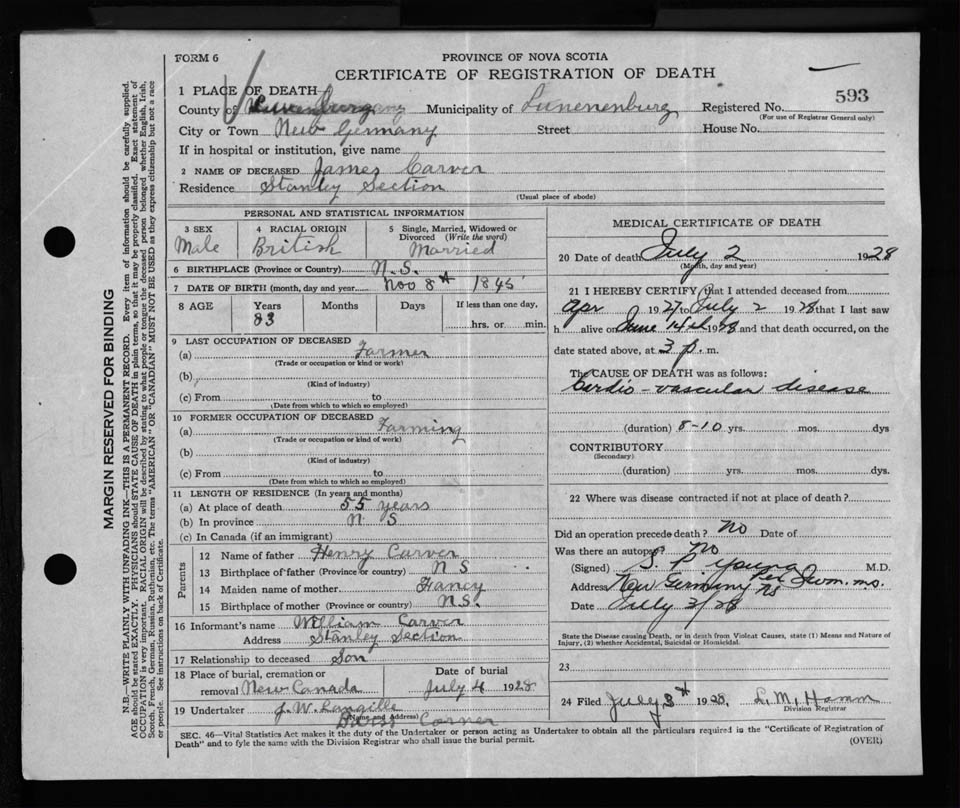 FORM 6
PROVINCE OF NOVA SCOTIA
CERTIFICATE OF REGISTRATION OF DEATH
593
1 PLACE OF DEATH
County of Lunenburg Municipality of Lunenenburg Registered No.
(For use of Registrar General only)
City or Town New Germany Street House No.
If in hospital or institution, give name
2 NAME OF DECEASED James Carver
Residence Stanley Section
(Usual place of abode)
PERSONAL AND STATISTICAL INFORMATION
3 SEX
Male
4 RACIAL ORIGIN
British
5 Single, Married, Widowed or Divorced (Write the word)
Married
6 BIRTHPLACE (Province or Country) N.S.
7 DATE OF BIRTH (month, day and year) Nov 8th 1845
8 AGE Years Months Days If less than one day,
83 hrs. or min.
9 LAST OCCUPATION OF DECEASED
(a) Farmer
(Trade or occupation or kind or work)
(b)
(Kind of industry)
(c) From to
(Date from which to which employed)
10 FORMER OCCUPATION OF DECEASED
(a) Farming
(Trade or occupation or kind of work)
(b)
(Kind of industry)
(c) From to
(Date from which to which employed)
11 LENGTH OF RESIDENCE (In years and months)
(a) At place of death 55 years
(b) In province N S
(c) In Canada (if an immigrant)
Parents
12 Name of father Henry Carver
13 Birthplace of father (Province or country) N S
14 Maiden name of mother Fancy
15 Birthplace of mother (Province or country) N.S.
16 Informant's name William Carver
Address Stanley Section
17 Relationship to deceased Son
18 Place of burial, cremation or removal New Canada
Date of burial
July 4 1928
19 Undertaker J. W. Langille
(Name and Address)
Corner
MEDICAL CERTIFICATE OF DEATH
20 Date of death July 2 1928
(Month, day and year)
21 I HEREBY CERTIFY that I attended deceased from
Apr 1927 to July 2 1928 that I last saw
h alive on June 14th 1928 and that death occurred, on the
date stated above, at 3 p. m.
The CAUSE OF DEATH was as follows:
Cardio-vascular disease
(duration) 8-10 yrs. mos. dys
CONTRIBUTORY
(Secondary)
(duration) yrs. mos. dys.
22 Where was disease contracted if not at place of death?
Did an operation precede death? No Date of
Was there an autopsy No
(Signed) S. P. Young M.D.
Address New Germany NS
Date July 3/28
State the Disease causing Death, or in death from Violent Causes, state (1) Means and Nature of
Injury, (2) whether Accidental, Suicidal or Homicidal.
23
24 Filed July 3rd 1928. L. M. Hamm
Division Registrar
SEC. 46—Vital Statistics Act makes it the duty of the Undertaker or person acting as Undertaker to obtain all the particulars required is the "Certificate of Registration of
Death" and to fyle the same with the Division Registrar who shall issue the burial permit. (OVER)
MARGIN RESERVED FOR BINDING
N.B.—WRITE PLAINLY WITH UNFADING INK—THIS IS A PERMANENT RECORD. Every item of information should be carefully supplied.
AGE should be stated EXACTLY. PHYSICIANS should STATE CAUSE OF DEATH in plain terms, so that it may be properly classified. Exact statement of
OCCUPATION is very important. RACIAL ORIGIN will be described by stating to what people or tongue the deceased person belonged whether English, Irish,
Scotch, French, German, Russian, Ruthenian, etc. The terms "AMERICAN" or "CANADIAN" MUST NOT BE USED as they express citizenship but not a race
or people. See instructions on back of Certificate.